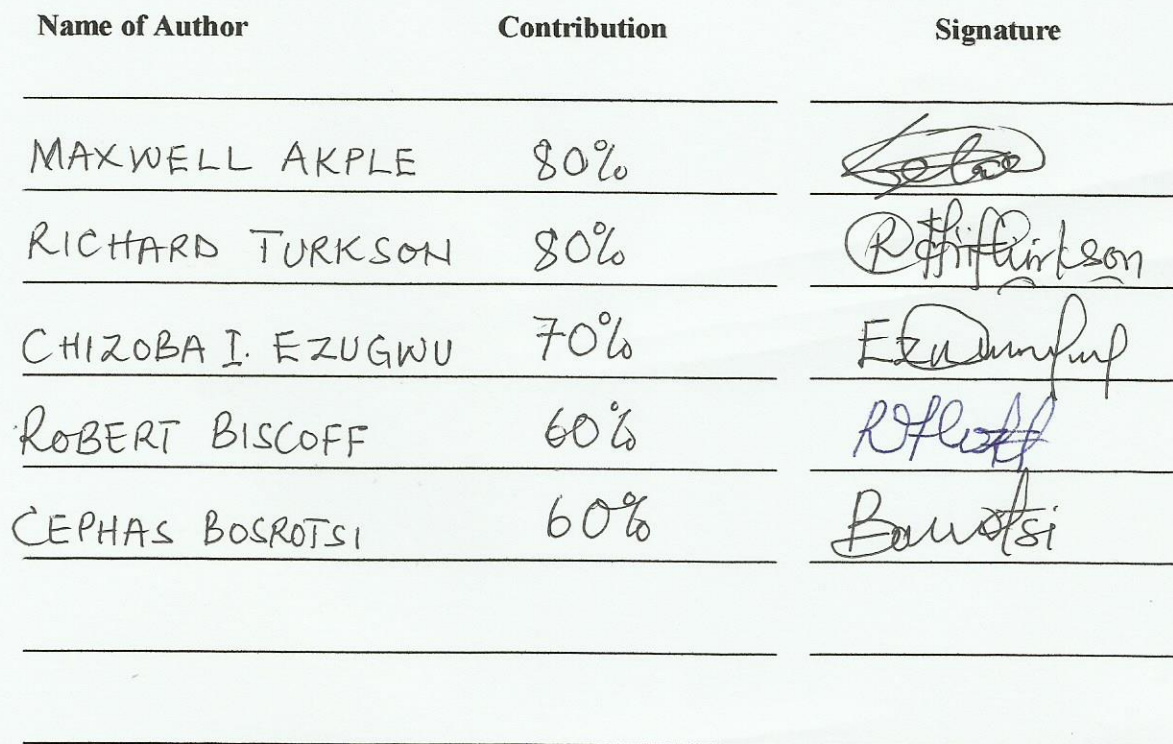 Name of Author Contribution Signature
MAXWELL AKPLE 80%
RICHARD TURKSON 80%
CHIZOBA I. EZUGWU 70%
ROBERT BISCOFF 60%
CEPHAS BOSROTSI 60%